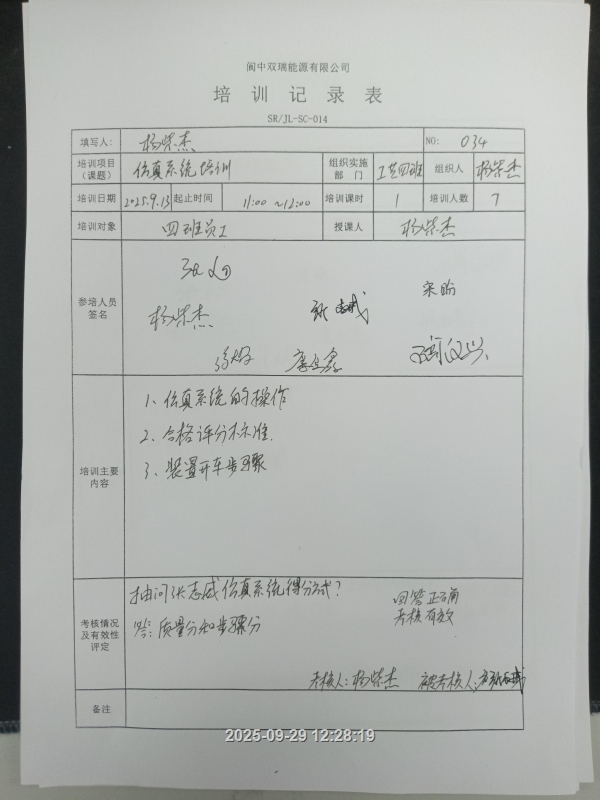 阆中双瑞能源有限公司
培训记录表
SR/JL-SC-014
填写人: 杨荣杰 NO: 034
培训项目(课题) 仿真系统培训 组织实施部门 工艺四班 组织人 杨荣杰
培训日期 2025.9.13 起止时间 11:00 ~12:00 培训课时 1 培训人数 7
培训对象 四班员工 授课人 杨荣杰
参培人员签名
宋瑜
杨荣杰
培训主要内容
1、仿真系统的操作
2、合格评分标准.
3、装置开车步骤
考核情况及有效性评定
抽问张志威仿真系统得分方式?
答:质量分和步骤分
回答正确
考核有效
考核人:杨荣杰 被考核人:
备注
2025-09-29 12:28:19